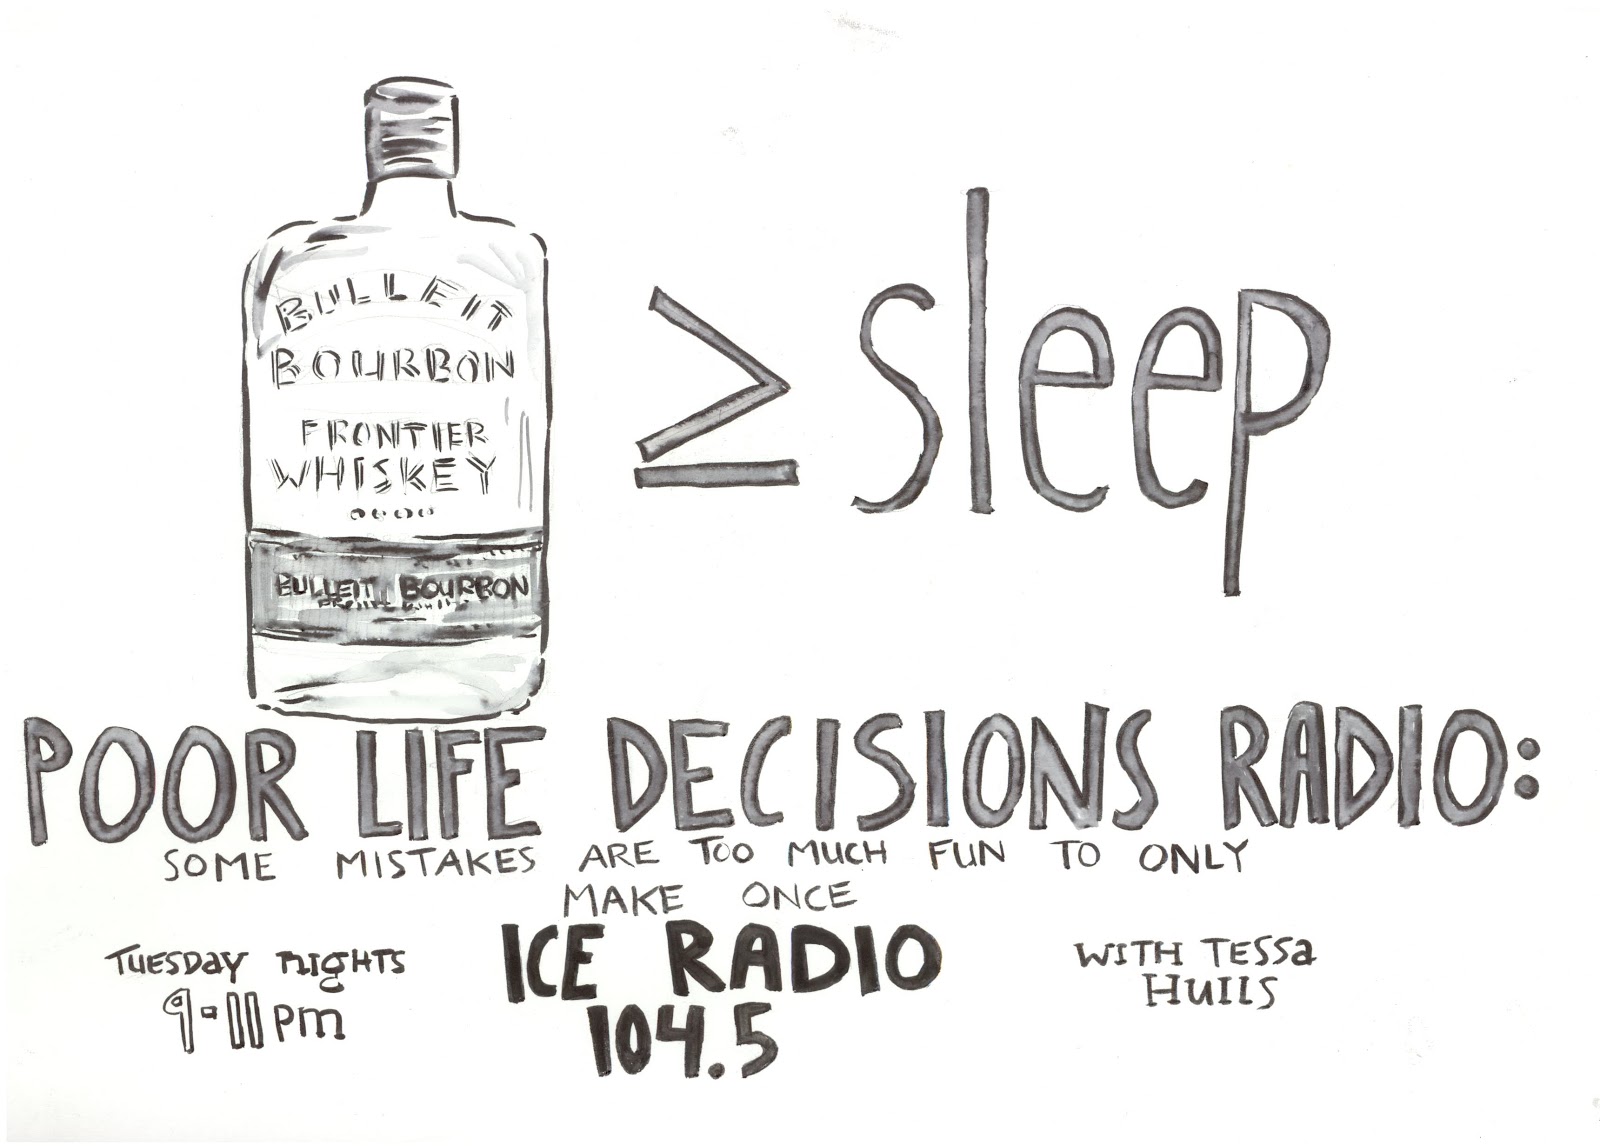 BULLEIT
BOURBON
FRONTIER
WHISKEY
BULLEIT BOURBON
≥ sleep
POOR LIFE DECISIONS RADIO:
SOME MISTAKES ARE TOO MUCH FUN TO ONLY
MAKE ONCE
ICE RADIO
104.5
TUESDAY nigHTS
9-11pm
WITH TESSa
HUllS